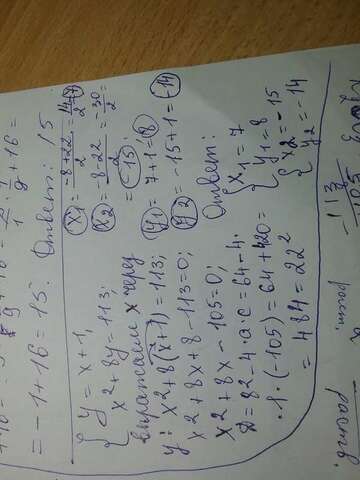 = -1+16=15. Ответ: 15.
{ y = x+1,
x2+8y=113;
выражаем x через
y: x2+8(x+1)=113;
x2+8x+8-113=0;
x2+8x-105=0;
D=82-4·a·c=64-4·
·1·(-105)=64+420=
=484=22²
x1=-8+22/2=14/2=7
x2=-8-22/2=-30/2=
=-15
y1=7+1=8
y2=-15+1=-14
Ответ:
{ x1=7
y1=8
{ x2=-15
y2=-14